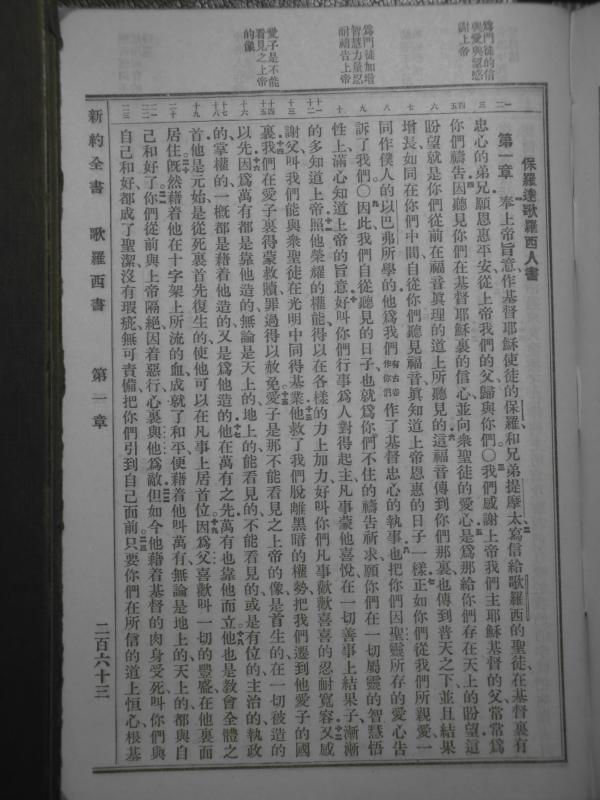 為門徒的信
與愛與望感
謝上帝
為門徒加增
智慧力量忍
耐禱告上帝
愛子是不能
看見之上帝
的像
保羅達歌羅西人書
第一章 奉上帝旨意作基督耶穌使徒的保羅和兄弟提摩太寫信給歌羅西的聖徒在基督裏有
忠心的弟兄願恩惠平安從上帝我們的父歸與你們〇我們感謝上帝我們主耶穌基督的父常常為
你們禱告因聽見你們在基督耶穌裏的信心並向衆聖徒的愛心是為那給你們存在天上的盼望這
盼望就是你們從前在福音眞理的道上所聽見的這福音傳到你們那裏也傳到普天之下並且結果
增長如同在你們中間自從你們聽見福音眞知道上帝恩惠的日子一樣正如你們從我們所親愛一
同作僕人的以巴弗所學的他為我們有古卷作你們作了基督忠心的執事也把你們因聖靈所存的愛心告
訴了我們〇因此我們自從聽見的日子也就為你們不住的禱告祈求願你們在一切屬靈的智慧悟
性上滿心知道上帝的旨意好叫你們行事為人對得起主凡事蒙他喜悅在一切善事上結果子漸漸
的多知道上帝照他榮耀的權能得以在各樣的力上加力好叫你們凡事歡歡喜喜的忍耐寬容又感
謝父叫我們能與衆聖徒在光明中同得基業他救了我們脫離黑暗的權勢把我們遷到他愛子的國
裏我們在愛子裏得蒙救贖罪過得以赦免愛子是那不能看見之上帝的像是首生的在一切被造的
以先因為萬有都是靠他造的無論是天上的地上的能看見的不能看見的或是有位的主治的執政
的掌權的一概都是藉着他造的又是為他造的他在萬有之先萬有也靠他而立他也是教會全體之
首他是元始是從死裏首先復生的使他可以在凡事上居首位因為父喜歡叫一切的豐盛在他裏面
居住旣然藉着他在十字架上所流的血成就了和平便藉着他叫萬有無論是地上的天上的都與自
己和好了你們從前與上帝隔絕因着惡行心裏與他為敵但如今他藉着基督的肉身受死叫你們與
自己和好都成了聖潔沒有瑕疵無可責備把你們引到自己面前只要你們在所信的道上恒心根基
新約全書 歌羅西書 第一章 二百六十三